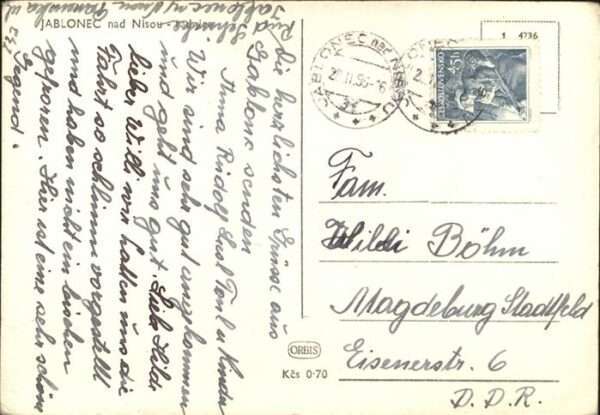 JABLONEC nad Nisou
Die herzlichsten Grüsse aus
Gablonz senden
Anna Rudolf u Kinder
Wir sind sehr gut angekommen
und geht uns gut. Liebe Hilde
lieber Willi wir hatten uns die
Fahrt so schlimm vorgestellt
und haben nicht ein bischen
gefroren. Hier ist eine sehr schöne
Gegend.
Jablonec
JABLONEC NAD NISOU
1 4736
ČESKOSLOVENSKO
45h
Fam.
Willi Böhm
Magdeburg Stadtfeld
Eisenerstr. 6
D. D. R.
ORBIS
Kčs 0·70